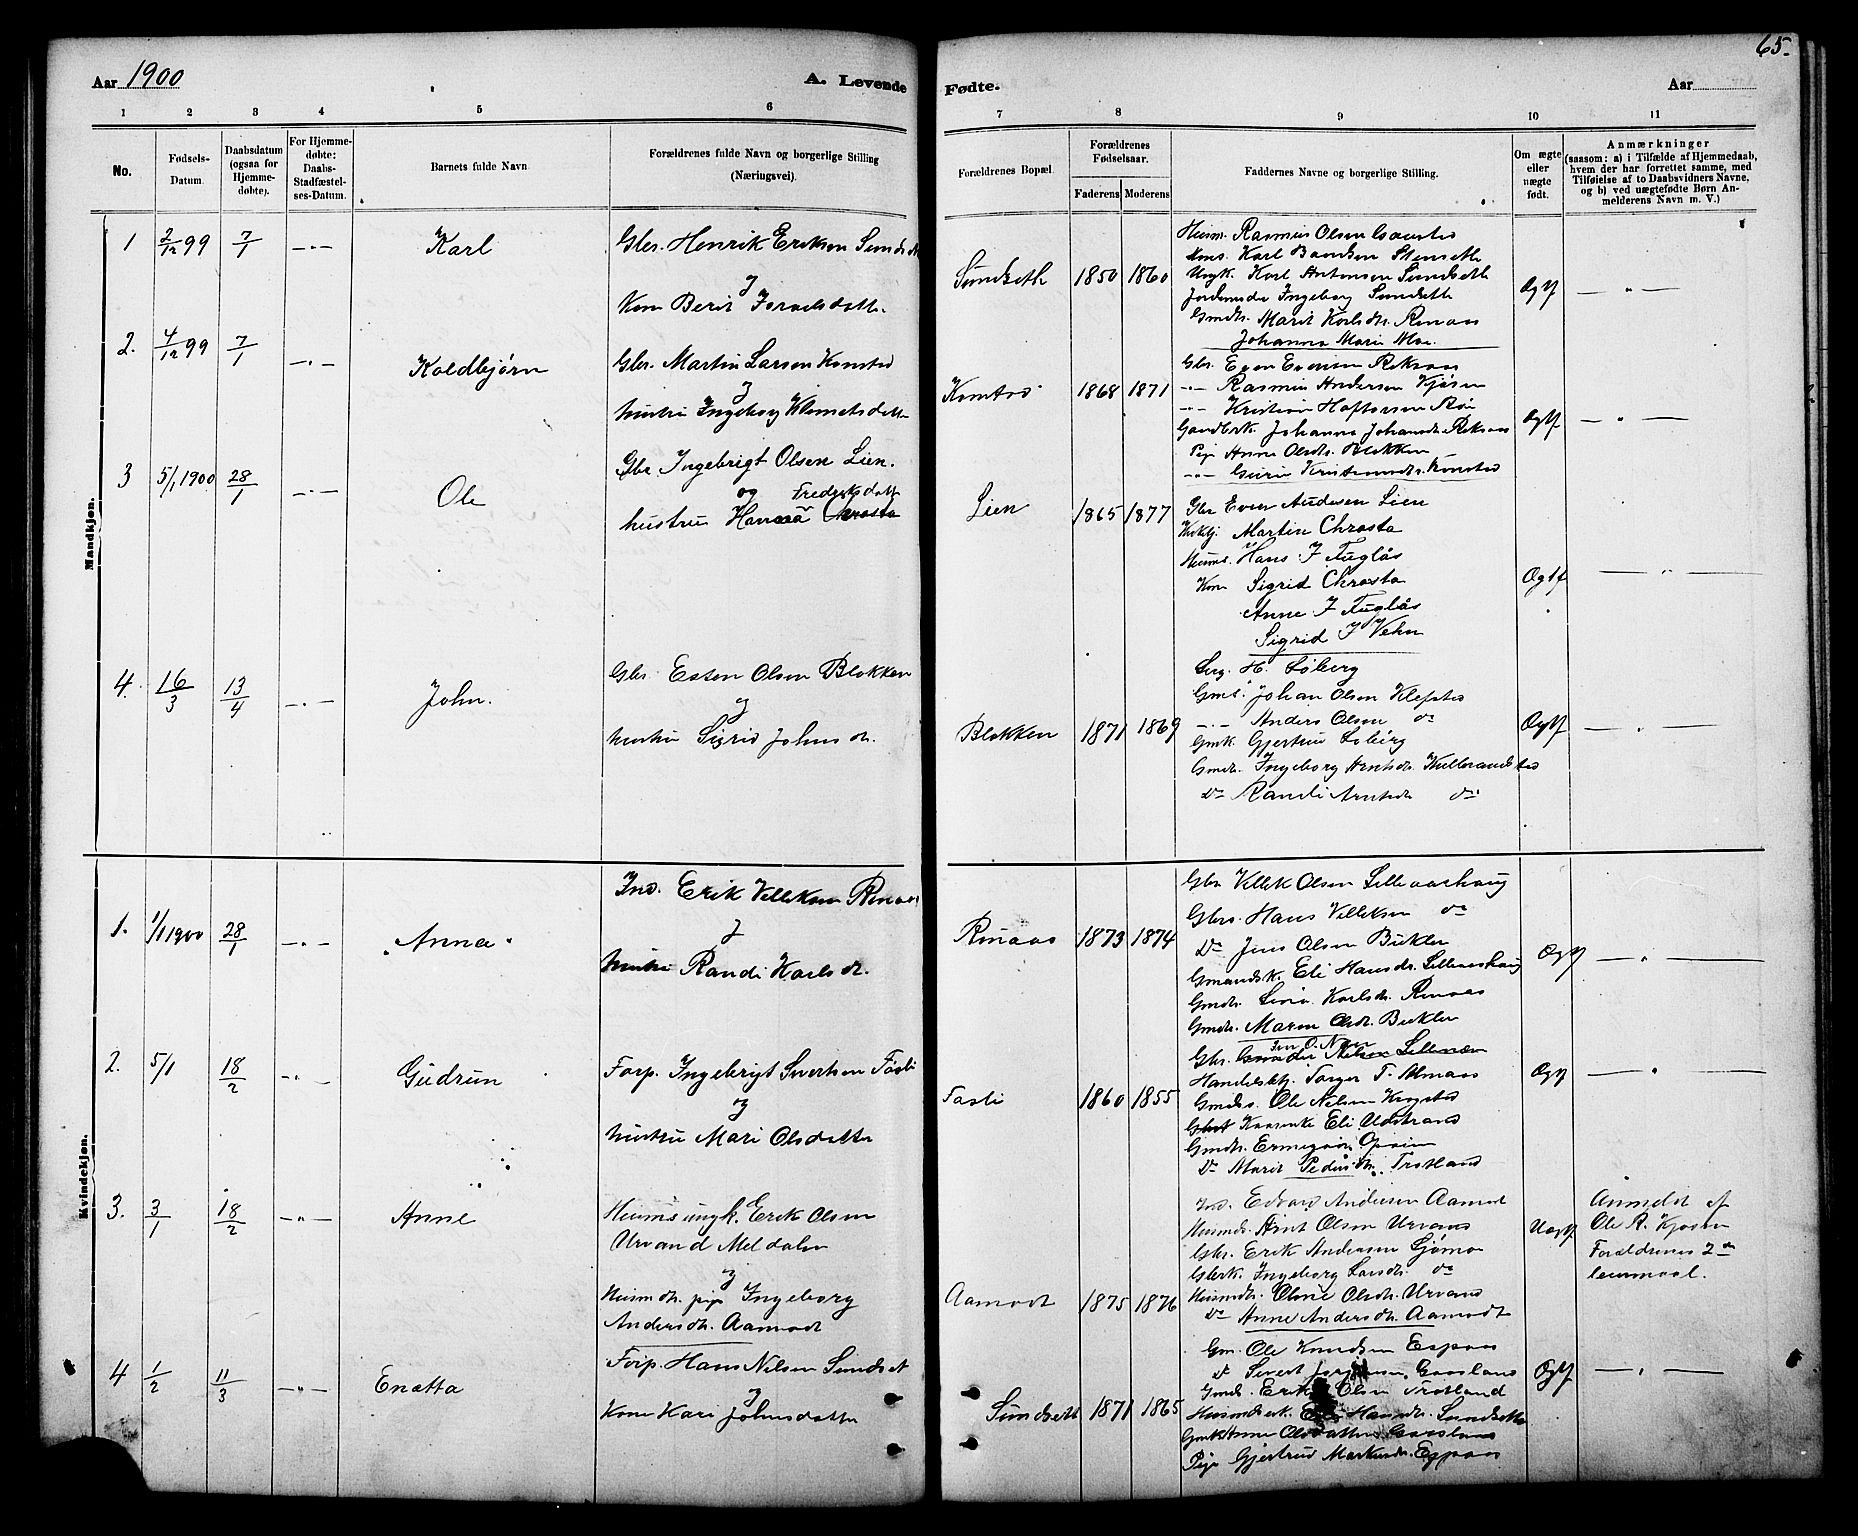 65.
Aar 1900
A. Levende
Fødte.
Aar
1 2 3 4 5 6
7 8 9 10 11
No.
Fødsels-
Datum.
Daabsdatum
(ogsaa for
Hjemme-
døbte).
For Hjemme-
døbte:
Daabs-
Stadfæstel-
ses-Datum.
Barnets fulde Navn.
Forældrenes fulde Navn og borgerlige Stilling
(Næringsvei).
Forældrenes Bopæl.
Forældrenes
Fødselsaar.
Faderens Moderens
Faddernes Navne og borgerlige Stilling.
Om ægte
eller
uægte
født.
Anmærkninger
(saasom: a) i Tilfælde af Hjemmedaab,
hvem der har forrettet samme, med
Tilføielse af to Daabsvidners Navne,
og b) ved uægtefødte Børn An-
melderens Navn m. V.)
Mandkjøn.
1 2/12 99 7/1 -„- Karl
Gbr. Henrik Eriksen Sundset
&
Kone Berit Israelsdatter
Sundseth 1850 1860
Rasmus Olsen
Karl Baardsen Stenseth
Ungk. Karl Antonsen Sundseth
Ingeborg Sundseth
Gmdtr. Marit Karlsdtr. Rinaas
Johanna Marie Moe.
Øgtf - „ -
2. 4/12 99 7/1 -„- Koldbjørn
Gbr. Martin Larsen Komstad
&
hustru Ingeborg Klometsdatter
Komstad 1868 1871
Gbr. Even Evensen Reksaas
-„- Rasmus Andersen Kjøsen
-„- Kristian Haftorsen Bøe
Gaardbrk. Johanna Johansdtr. Reksaas
Pige Anne Olsdtr. Blokken
-„- Guru Kristensdtr. Komstad
Øgtf - „ -
3 5/1 1900 28/1 -„- Ole
Gbr Ingebrigt Olsen Lien.
og Fredriksdatter
hustru Hanna Chrosta
Lien 1865 1877
Gbr Even Andersen Lien
Martin Chrosta
Husms. Hans J Fuglås
Kone Sigrid Chrosta
Anne J Fuglås
Sigrid J Vehn
Øgtf - „ -
4. 16/3 13/4 -„- John.
Gbr. Esten Olsen Blokken
&
hustru Sigrid Johnsdtr.
Blokken 1871 1869
H. Løberg
Gms. Johan Olsen Klefstad
-„- Anders Olsen do
Gmk. Gjertrud Løberg
Gmdtr. Ingeborg Arntsdtr.
Do Randi Arntsdtr do
Øgtf - „ -
Kvindekjøn.
1. 1/1 1900 28/1 -„- Anna
Ind. Erik Villiksen Rinaas
&
hustru Randi Karlsdtr.
Rinaas 1873 1874
Gbr Villik Olsen Lilleaashaug
Gbrs. Hans Villiksen do
Do Jens Olsen Bukler
Gmandsk. Eli Hansdr. Lilleaashaug
Gmdtr. Karlsdtr. Rinaas
Gmdtr. Maren Olsdtr. Bukler
Øgtf - „ -
2. 5/1 18/2 -„- Gudrun
Forp. Ingebrigt Sivertsen Fosli
&
hustru Mari Olsdatter
Fosli 1860 1855
Gbr. Nilsen
Handelsbtj. Torger T. Almaas
Gmds. Ole Nilsen Krogstad
Eli Udstrand
Gmdtr.
Do Marit Pedersdtr. Trotland
Øgtf - „ -
3. 3/1 18/2 -„- Anne
Husmsungk. Erik Olsen
Urvand Meldalen
&
Husmdtr. pige Ingeborg
Andersdtr. Aamodt
Aamodt 1875 1876
Ind. Edvard Andersen Aamodt
Husmds. Arnt Olsen Urvans
Gbr. Erik Andersen Sjømo
Gbrk. Ingeborg Larsdtr. do
Husmdtr. Oline Olsdtr. Urvand
Do Anne Andersdtr. Aamodt
Uægtf
Anmeldt af
Ole R. Kjøsen
Forældrenes 2de
leiermaal.
4 1/2 11/3 -„- Enætta
Forp. Hans Nilsen Sundset
&
Kone Kari Johnsdatter
Sundseth 1871 1865
Gm. Ole Knudsen Espaas
Sivert Gaasland
Gmds. Erik Olsen Trotland
Hansdtr. Sundseth
Gmk Anne Olsdatter
Pige Gjertrud Markusdtr. Espaas
Øgtf - „ -